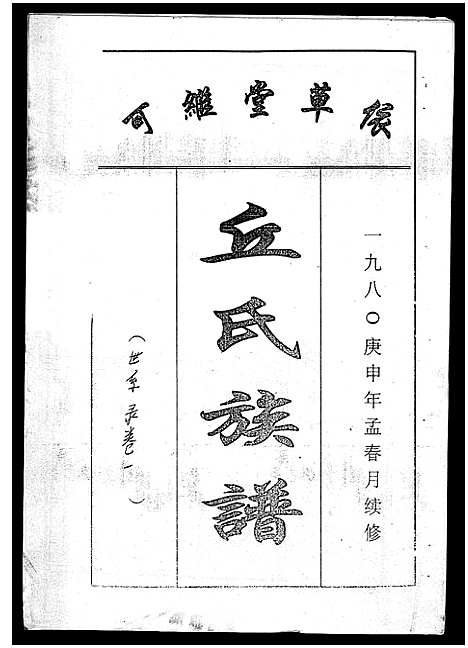 草堂維
一九八〇庚申年孟春月续修
丘氏族譜
（世系录卷一）